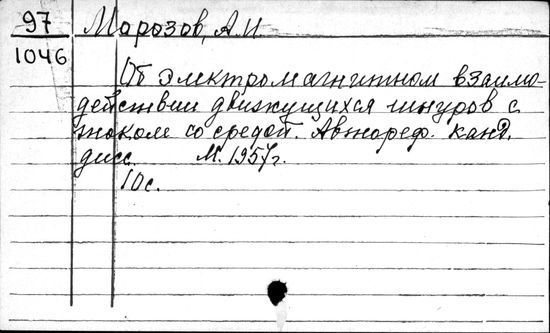 97 Морозов, А.И.
1046
Об электромагнитном взаимо-
действии движущихся шнуров с
током со средой. Автореф. канд.
дисс. М. 1957г.
10с.